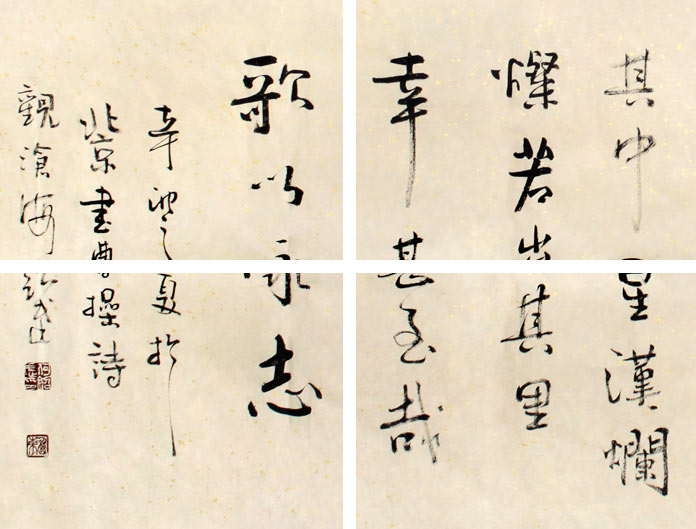 其中星漢爛
燦若出其里
幸甚至哉
歌以詠志
辛之夏於
北京書曹操詩
觀滄海